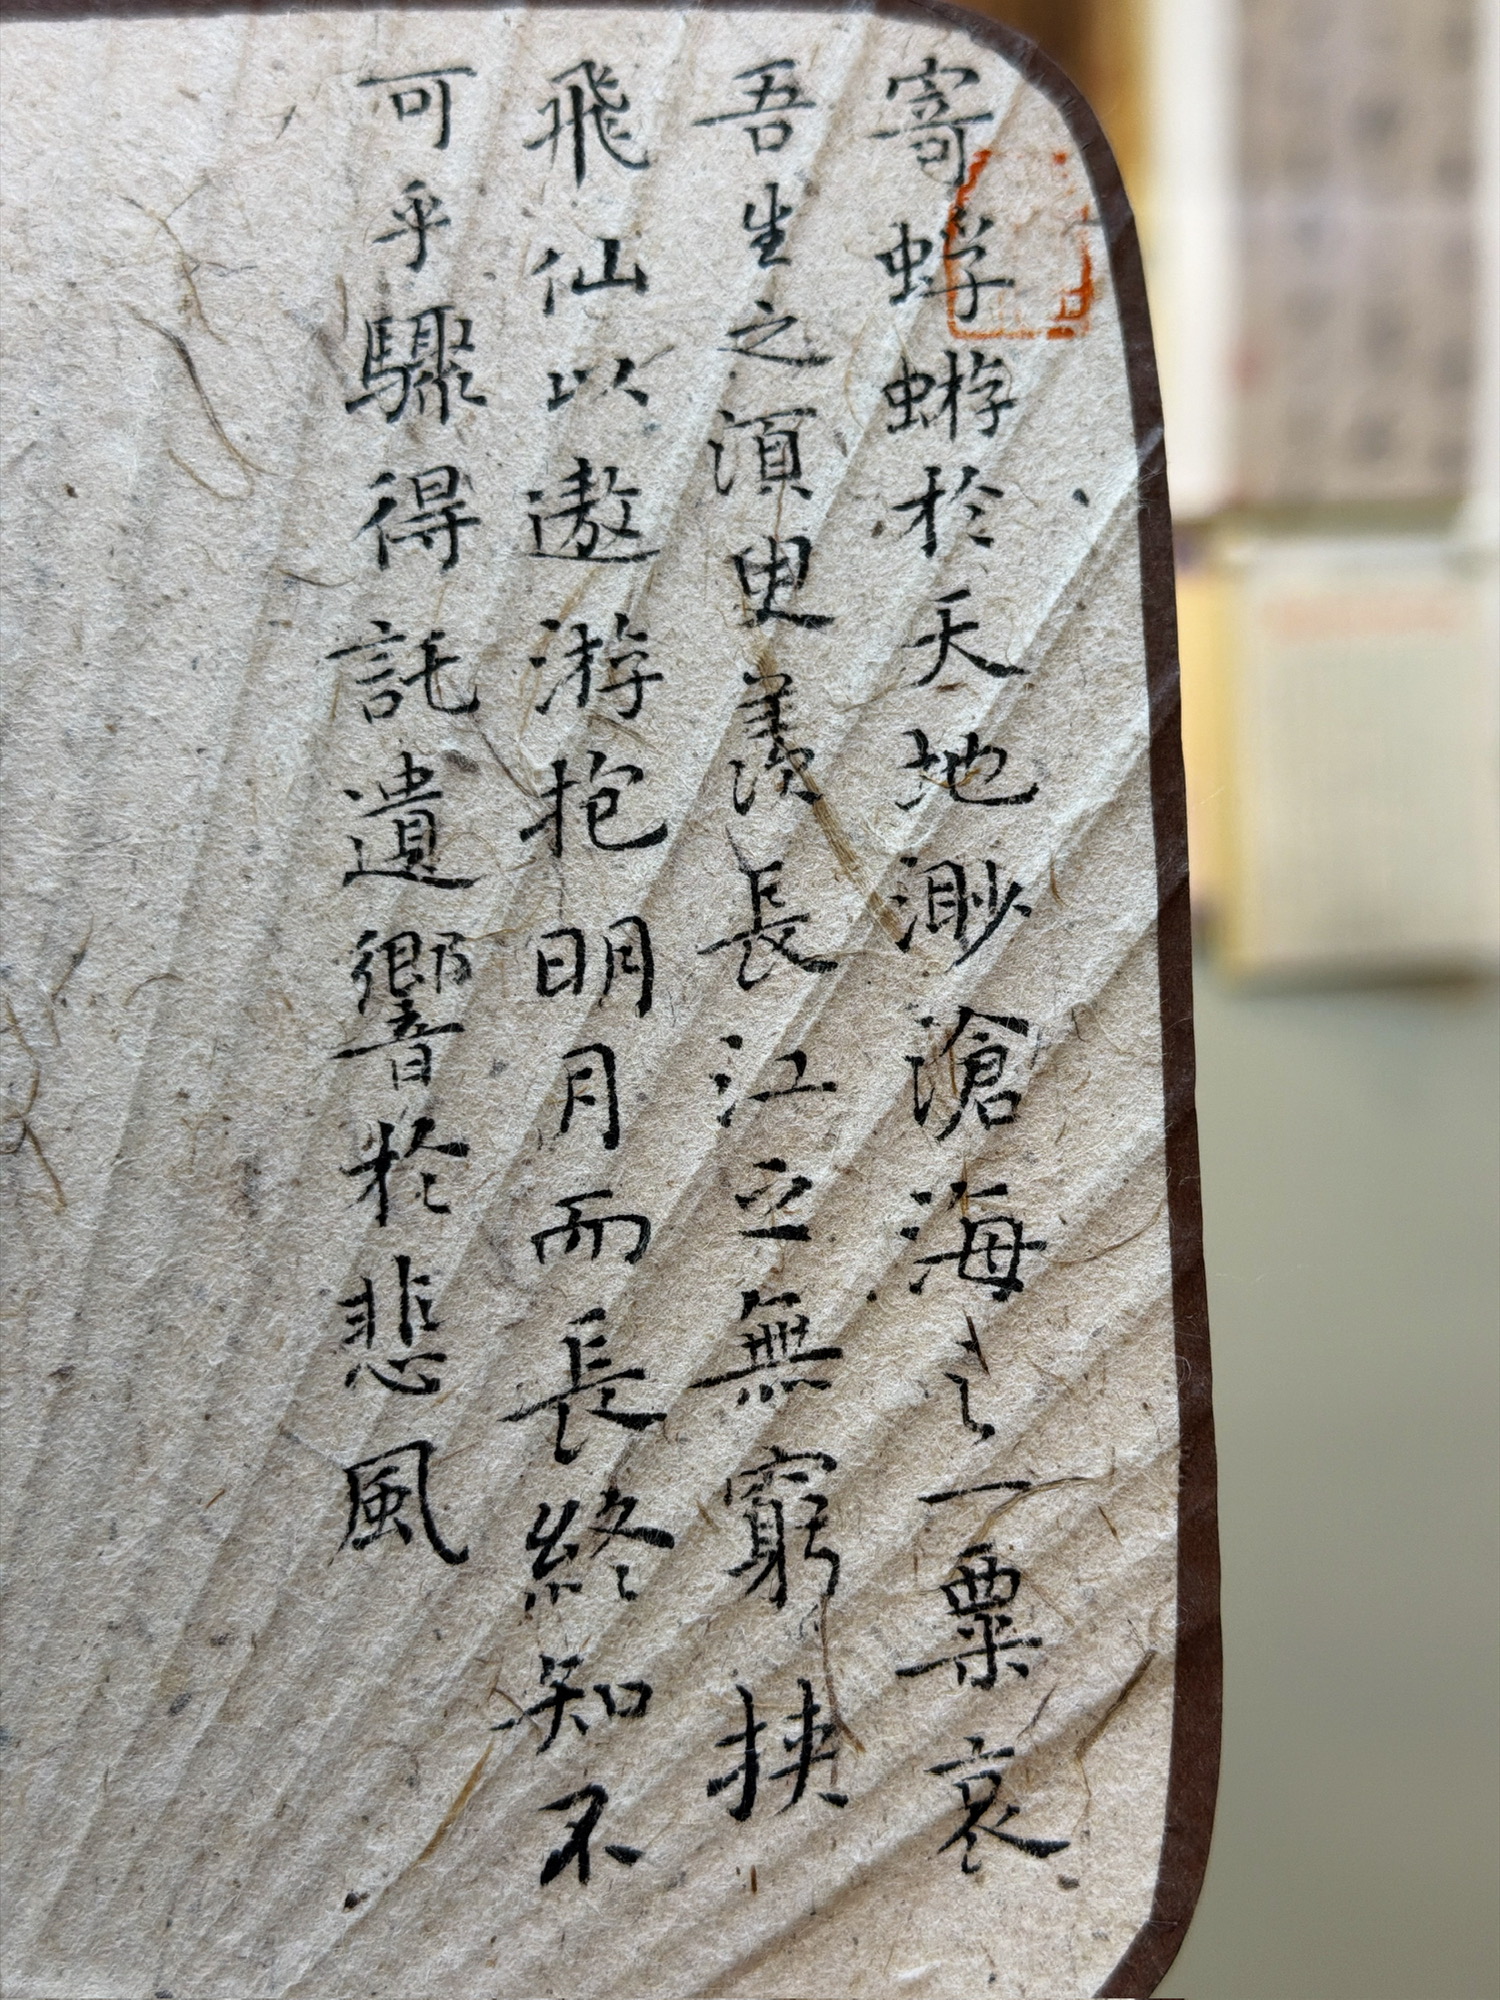 寄蜉蝣於天地渺滄海之一粟哀
吾生之須臾羨長江之無窮挾
飛仙以遨游抱明月而長終知不
可乎驟得託遺響於悲風